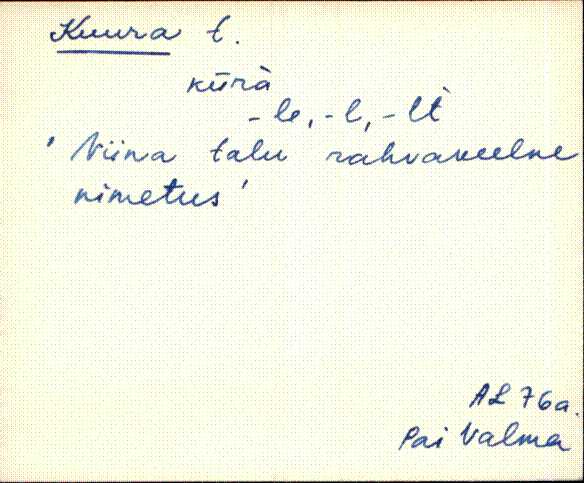 Kuura t.
kūrà
-le, -l, -lt
'Niina talu rahvakeelne
nimetus'
AL 76a.
Pai Valma